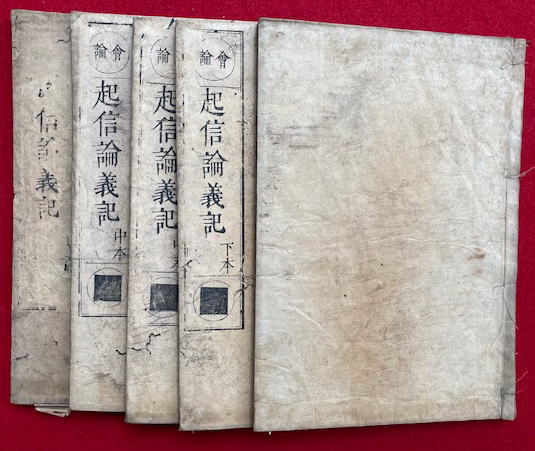 信論義記
會論
起信論義記
中本
會論
起信論義記
會論
起信論義記
下本